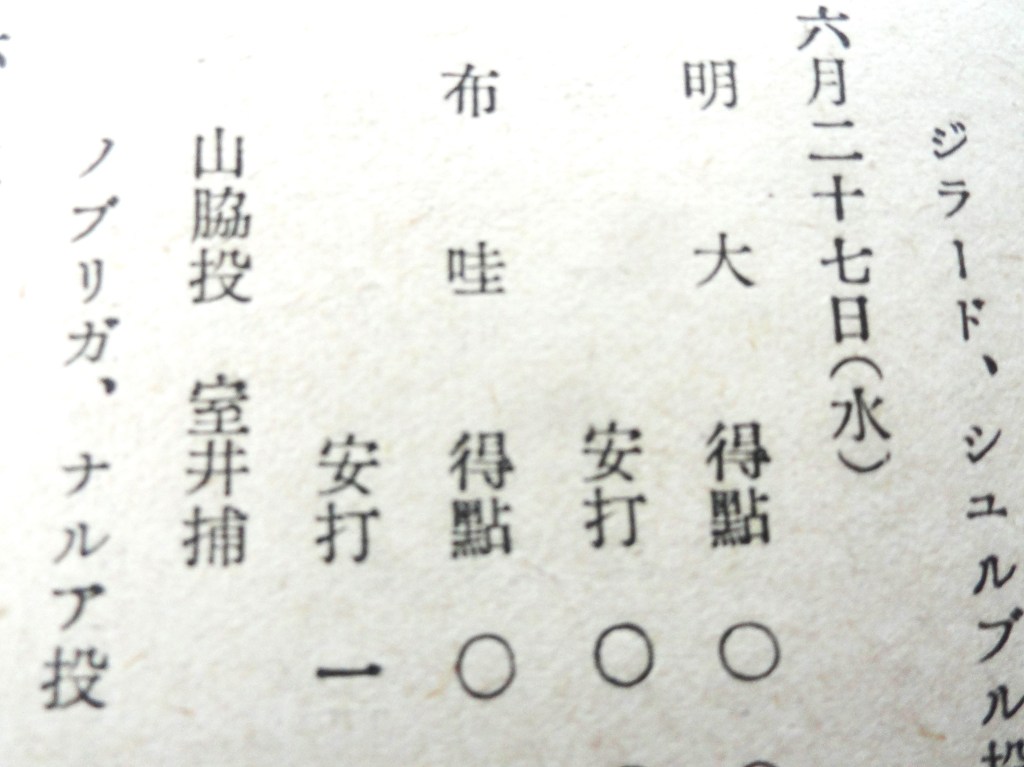 ジラード、シュルブル投
六月二十七日(水)
明大 得點 〇
安打 〇
布哇 得點 〇
安打 一
山脇投 室井捕
ノブリガ、ナルア投